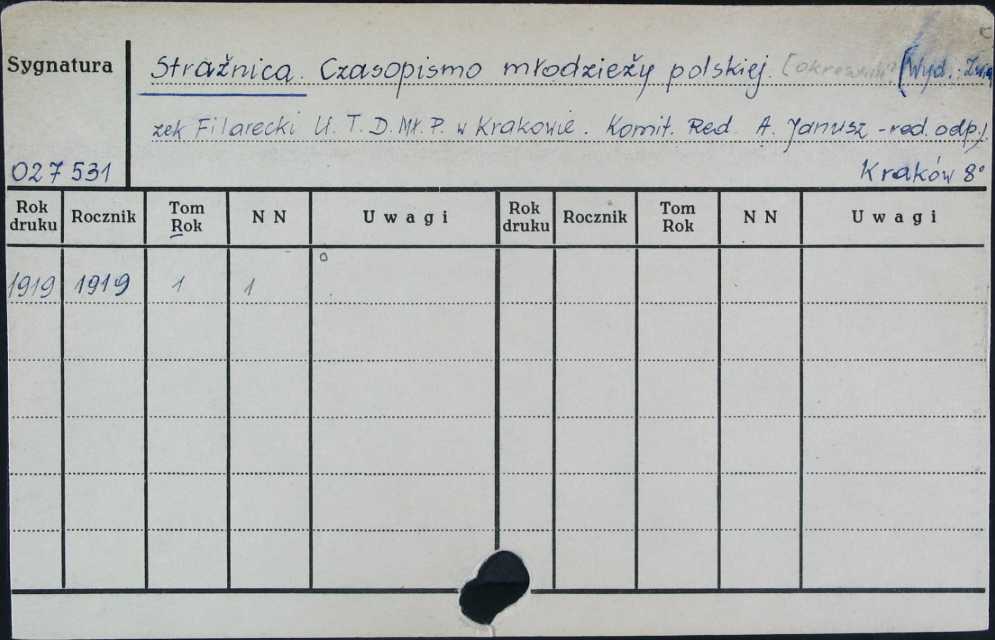 Sygnatura
Strażnica. Czasopismo młodzieży polskiej. (Wyd. Zwią
zek Filarecki U. T. D. Mł. P. w Krakowie. Komit. Red. A. Janusz - red. odp.)
027531 Kraków 8°
Rok druku Rocznik Tom Rok N N Uwagi Rok druku Rocznik Tom Rok N N Uwagi
1919 1919 1 1